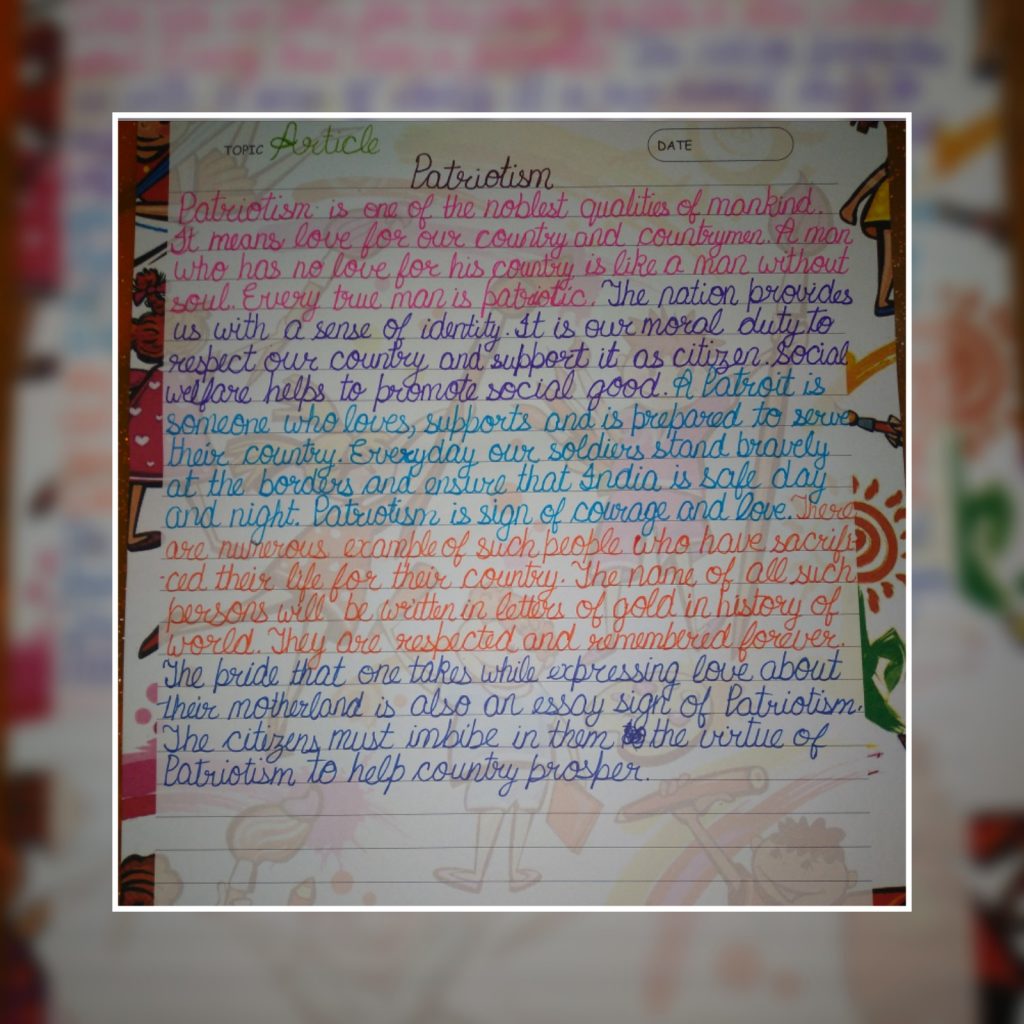 TOPIC Article
DATE
Patriotism
Patriotism is one of the noblest qualities of mankind.
It means love for our country and countrymen. A man
who has no love for his country is like a man without
soul. Every true man is patriotic. The nation provides
us with a sense of identity. It is our moral duty to
respect our country and support it as citizen. Social
welfare helps to promote social good. A Patroit is
someone who loves, supports and is prepared to serve
their country. Everyday our soldiers stand bravely
at the borders and ensure that India is safe day
and night. Patriotism is sign of courage and love. There
are numerous example of such people who have sacrifi
-ced their life for their country. The name of all such
persons will be written in letters of gold in history of
world. They are respected and remembered forever.
The pride that one takes while expressing love about
their motherland is also an essay sign of Patriotism.
The citizens must imbibe in them the virtue of
Patriotism to help country prosper.